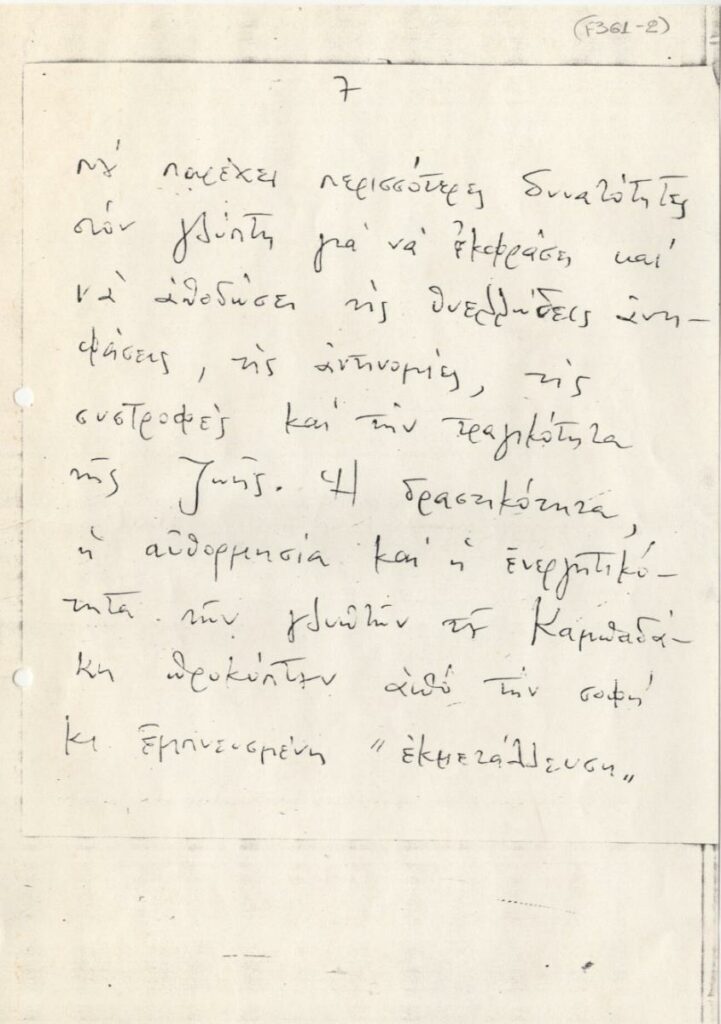 (F361-2)
7
πȣ́ παρέχει περισσότερες δυνατότητες
στόν γλύπτη γιά νά ἐκφράση καί
νά ἀποδώσει τίς θυελλώδεις ἀντι-
φάσεις, τίς ἀντινομίες, τίς
συστροφές καί τήν τραγικότητα
τῆς ζωῆς. Ἡ δραστικότητα,
ἡ αὐθορμησία καί ἡ ἐνεργητικό-
τητα τῶν γλυπτῶν τȣ͂ Καμπαδά-
κη προκύπτȣν ἀπό τήν σοφή
κι ἐμπνευσμένη "ἐκμετάλλευση"